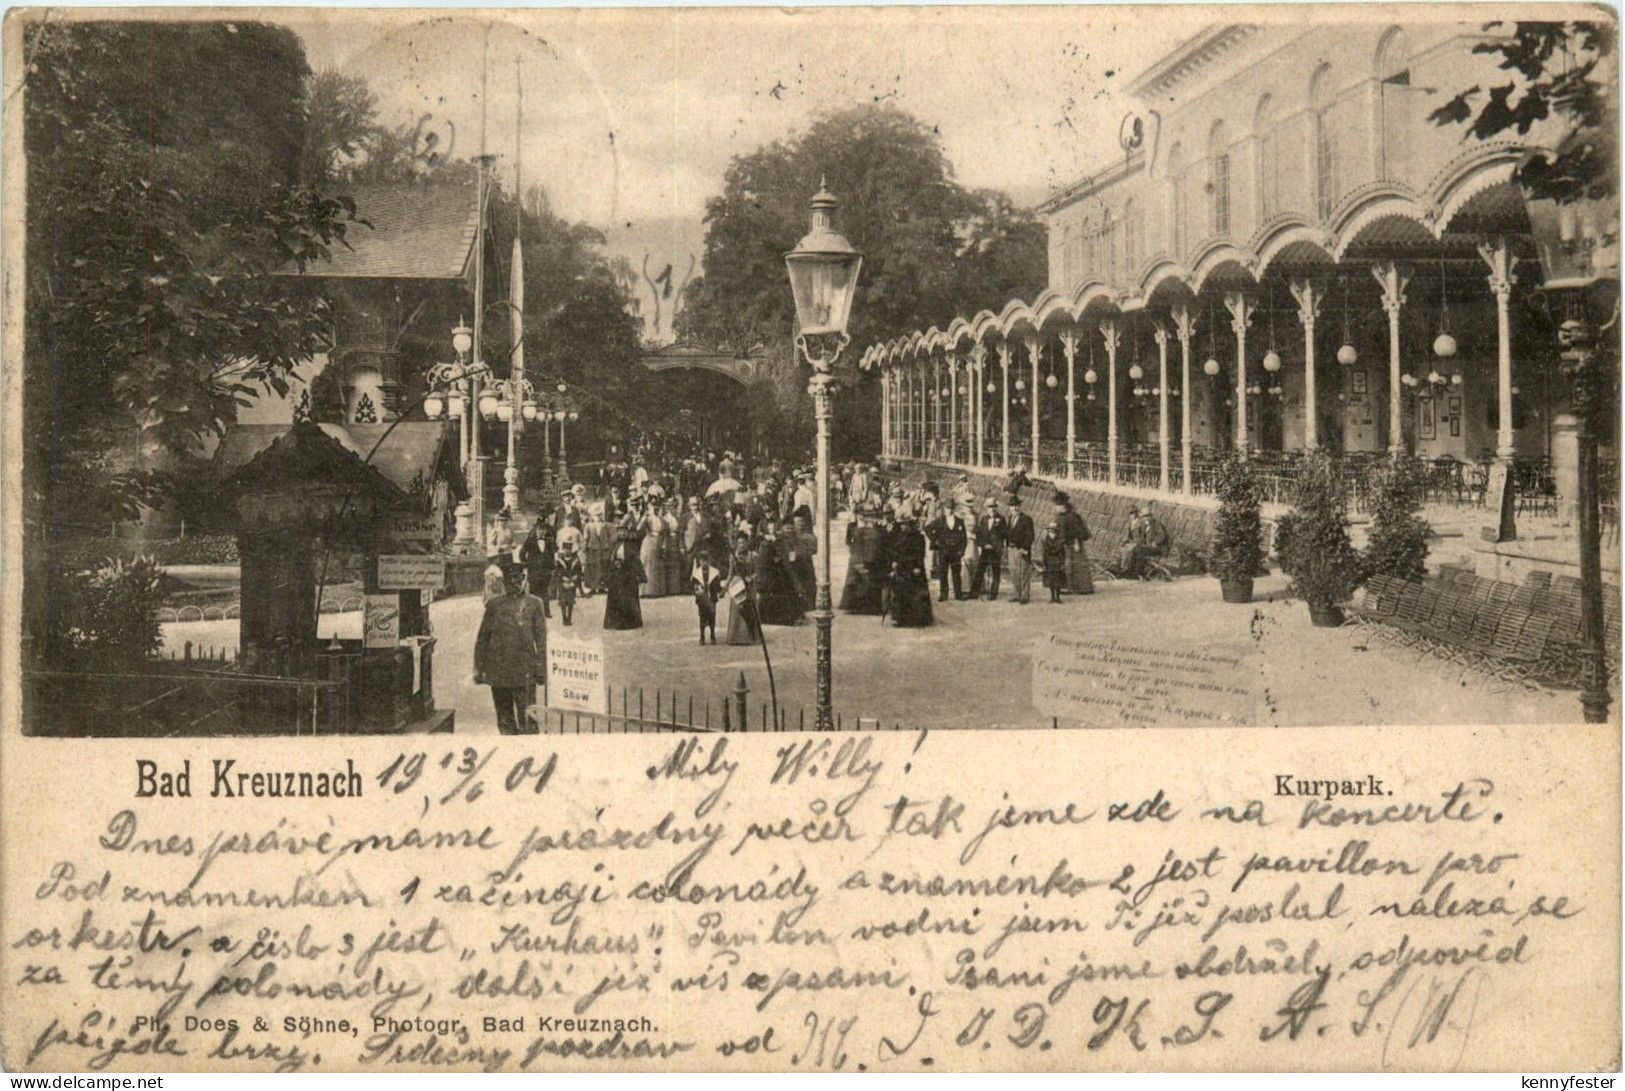 (2)
1
(3)
Kasse.
vorzeigen.
Presenter
Show
Bad Kreuznach
19 13/6 01
Milý Willy!
Kurpark.
Dnes právě máme prázdný večer tak jsme zde na koncertě.
Pod znamenken 1 začínají colonády a znaménko 2 jest pavillon pro
orkestr. a číslo 3 jest „Kurhaus". Pavilon vodní jsem Ti již poslal, nalezá se
za těmy colonády, další již víš z psaní. Psaní jsme obdržely, odpověd
Ph. Does & Söhne, Photogr. Bad Kreuznach.
přijde brzy. Srdečný pozdrav od
J. D. K. S. A. S. (W)
kennyfester